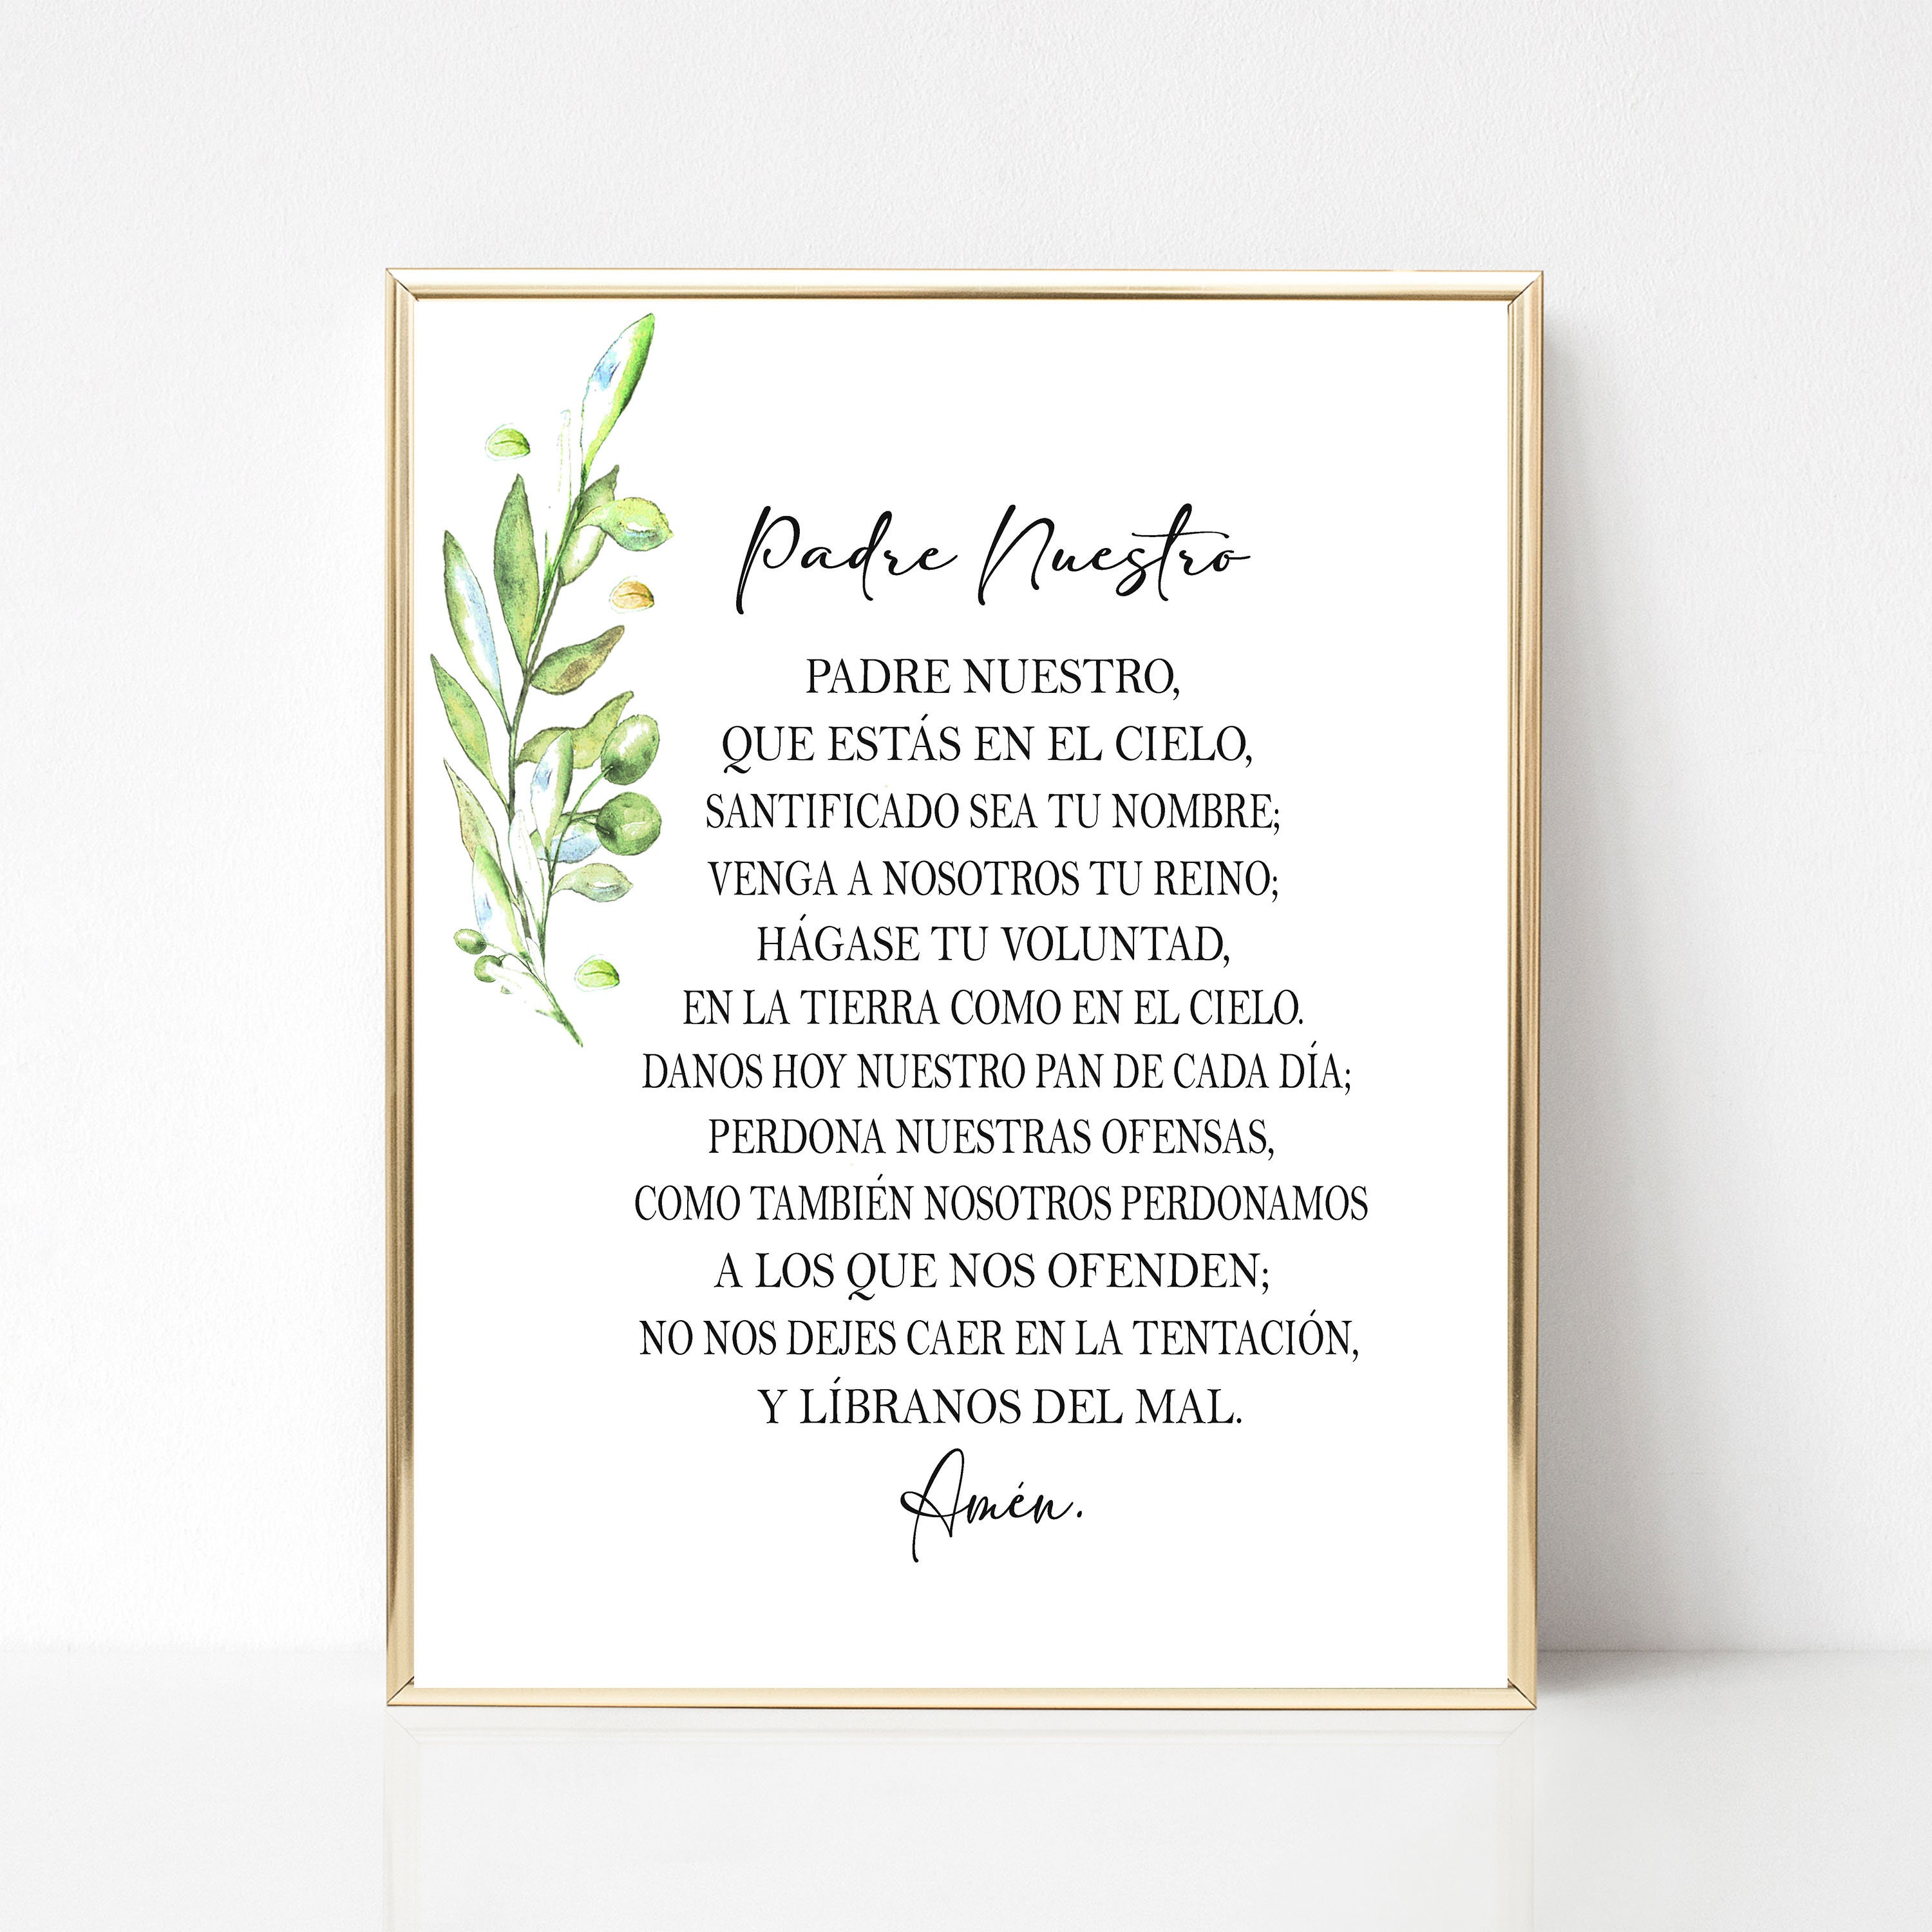 Padre Nuestro
PADRE NUESTRO,
QUE ESTÁS EN EL CIELO,
SANTIFICADO SEA TU NOMBRE;
VENGA A NOSOTROS TU REINO;
HÁGASE TU VOLUNTAD,
EN LA TIERRA COMO EN EL CIELO.
DANOS HOY NUESTRO PAN DE CADA DÍA;
PERDONA NUESTRAS OFENSAS,
COMO TAMBIÉN NOSOTROS PERDONAMOS
A LOS QUE NOS OFENDEN;
NO NOS DEJES CAER EN LA TENTACIÓN,
Y LÍBRANOS DEL MAL.
Amén.